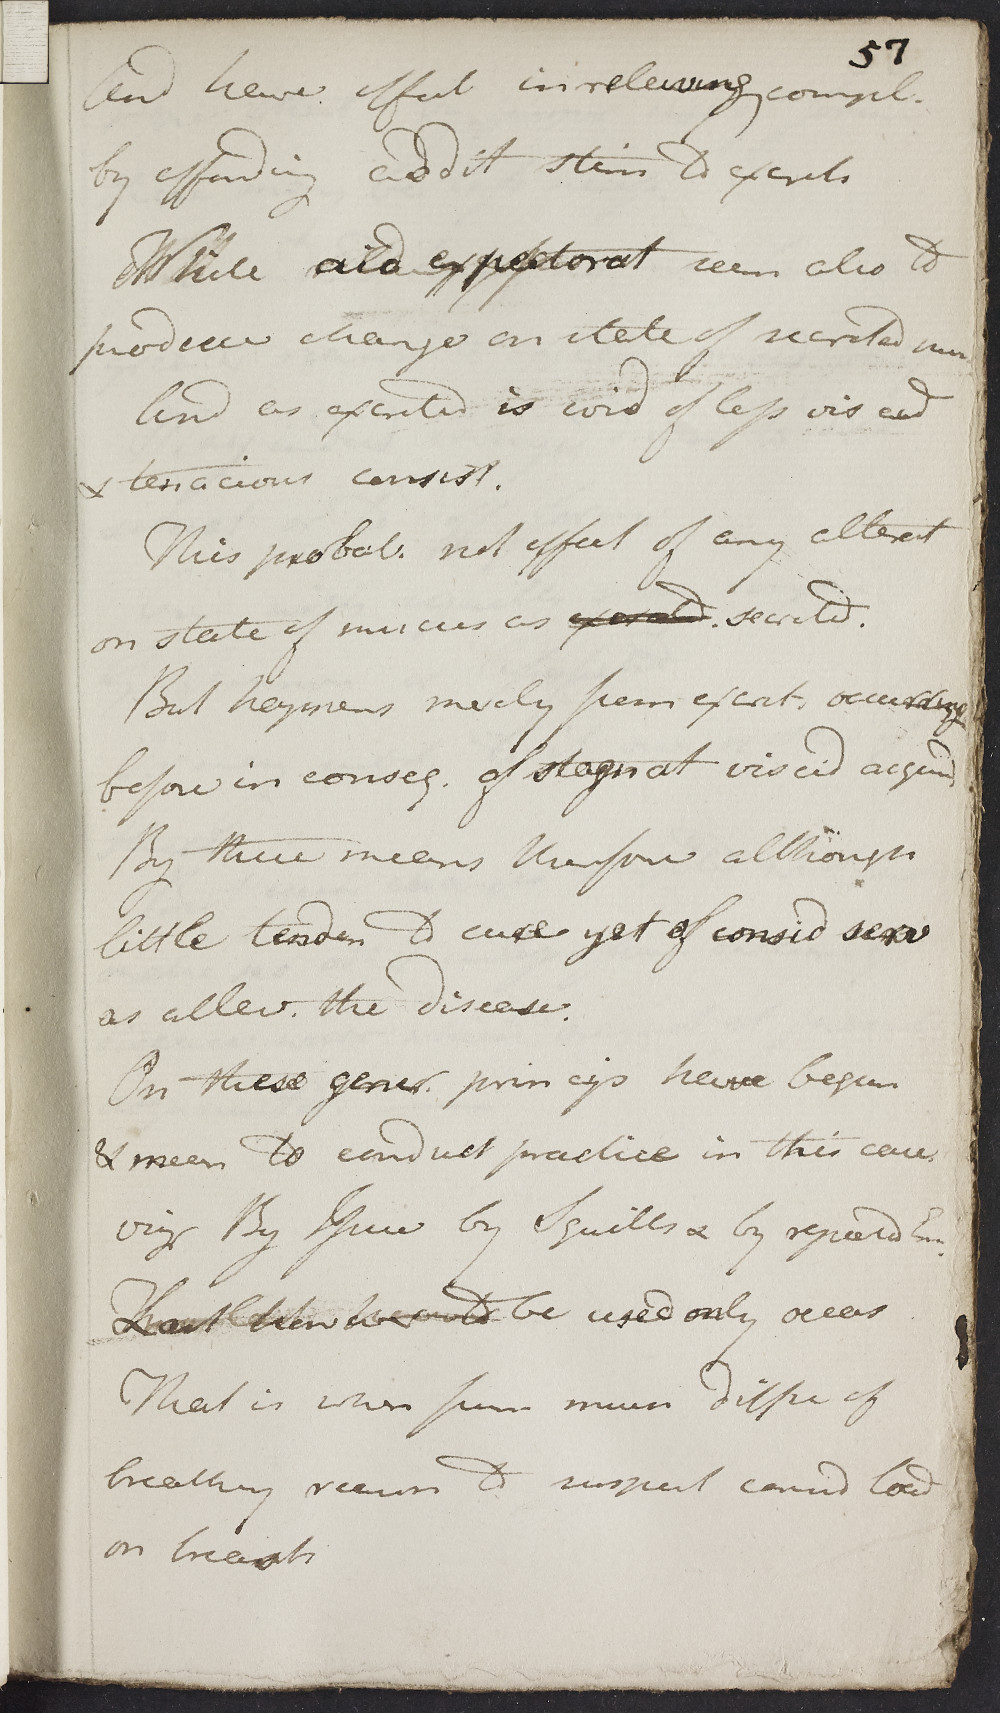 57
And have effect in releiving compl.
by affording addit stim to excret
While aid expectorat seem also to
produce change on state of secreted muc
And as excreted is void of less viscid
& tenacious consist.
This probab. not effect of any alterat
on state of mucus as excreted. secreted.
But happens merely from excret. occurring
before in conseq. of stagnat viscid acquired
By these means therefore although
little tenden to cure yet of consid serv
as allev. the disease.
On these gener. princips have begun
& mean to conduct practice in this case
viz By by Squills & by repeated Em.
be used only occas
That is when from much diffic of
breathing reason to suspect consid load
on breast